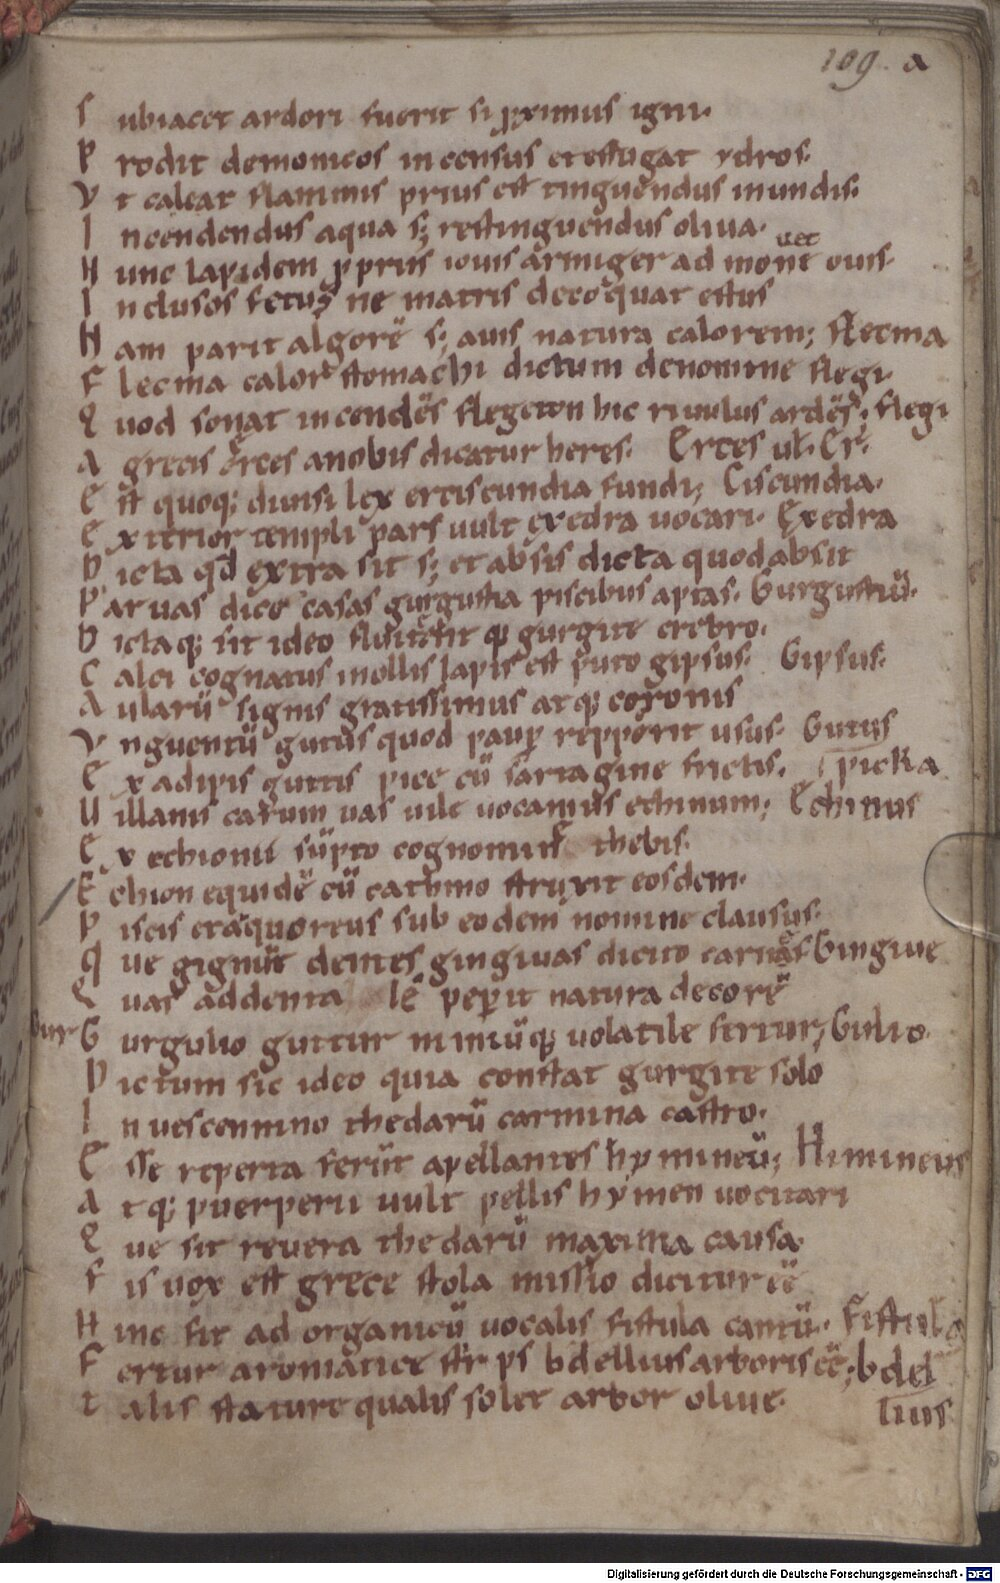 109. a
S ubiacet ardori fuerit si pximus igni.
P rodit demonicos incensus et effugat ydros.
V t caleat flammis prius est tinguendus in undis.
I ncendendus aqua s; restinguendus oliua.
H unc lapidem pprius iouis armiger ad mouet ouis.
I nclusos fetus ne matris decoquat estus
N am parit algorē s; auis natura calorem; Flecma
F lecma calor stomachi dictum denomine flegi
Q uod sonat incendēs flegeton hic riuulus ardēs. Flegi
A grecis erces anobis dicatur heres. Erces ul. Er.
E st quoq; diuisi lex erciscundia fundi; Ciscundia.
E xterior templi pars uult exedra uocari. Exedra
D icta qd extra sit s; et absis dicta quod absit
P aruas dico casas gurgustia piscibus aptas. Gurgustiū.
D ictaq; sit ideo gurgite crebro.
C alci cognatus mollis lapis est puto gipsus. Gipsus.
A ularū signis gratissimus atq; coronis
V nguentū gutus quod paup repporit usus. Gutus
E x adipis guttis pice cū sartagine frictis. picka
U illanis catum uas uile uocamus echinum; Echinus
E x echionii sūpto cognomine thebis.
E chion equidē cū cathmo struxit eosdem.
P iscis et ęquoreus sub eodem nomine clausus.
Q ue gignūt dentes gingiuas dicito carnes Gingiue
Q uas addenta lē pepit natura decorē
Gur G urgulio guttur minūq; uolatile fertur; Gulio.
D ictum sic ideo quia constat gurgite solo
I n uescennino thedarū carmina castro.
E sse reperta ferūt apellantes hymineū; Himineus
A tq; puerperii uult pellis hymen uocitari
Q ue sit reuera thedarū maxima causa.
F is uox est grece stola missio dicitur eē
H inc fit ad organicū uocalis fistula cantū. Fistula
F ertur aromatice bdellius arboris eē; bdel
T alis stature qualis solet arbor oliue. lius
Digitalisierung gefördert durch die Deutsche Forschungsgemeinschaft - DFG